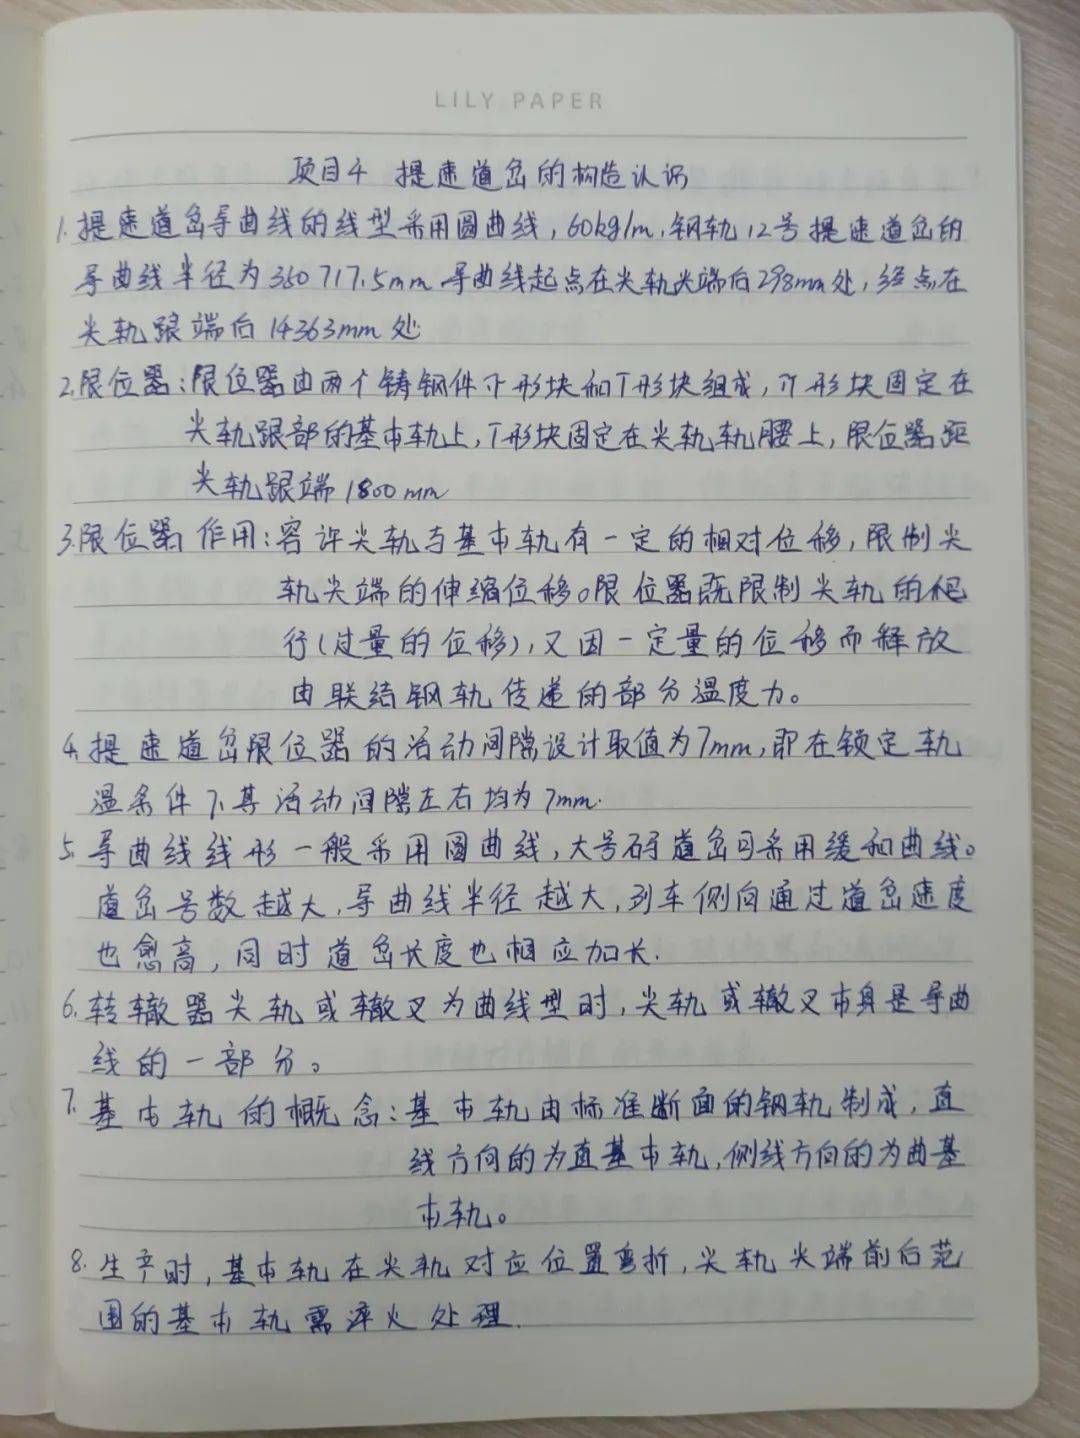 LILY PAPER
项目4 提速道岔的构造认识
1. 提速道岔导曲线的线型采用圆曲线，60kg/m，钢轨12号提速道岔的
导曲线半径为350717.5mm 导曲线起点在尖轨尖端后298mm处，终点在
尖轨跟端后14363mm处
2. 限位器：限位器由两个铸钢件 形块和T形块组成， 形块固定在
尖轨跟部的基本轨上，T形块固定在尖轨轨腰上，限位器距
尖轨跟端1800mm
3. 限位器作用：容许尖轨与基本轨有一定的相对位移，限制尖
轨尖端的伸缩位移。限位器既限制尖轨的爬
行(过量的位移)，又因一定量的位移而释放
由联结钢轨传递的部分温度力。
4. 提速道岔限位器的活动间隙设计取值为7mm，即在锁定轨
温条件下其活动间隙左右均为7mm.
5. 导曲线线形一般采用圆曲线，大号码道岔可采用缓和曲线。
道岔号数越大，导曲线半径越大，列车侧向通过道岔速度
也愈高，同时道岔长度也相应加长.
6. 转辙器尖轨或辙叉为曲线型时，尖轨或辙叉本身是导曲
线的一部分。
7. 基本轨的概念：基本轨由标准断面的钢轨制成，直
线方向的为直基本轨，侧线方向的为曲基
本轨。
8. 生产时，基本轨在尖轨对应位置弯折，尖轨尖端前后范
围的基本轨需淬火处理.